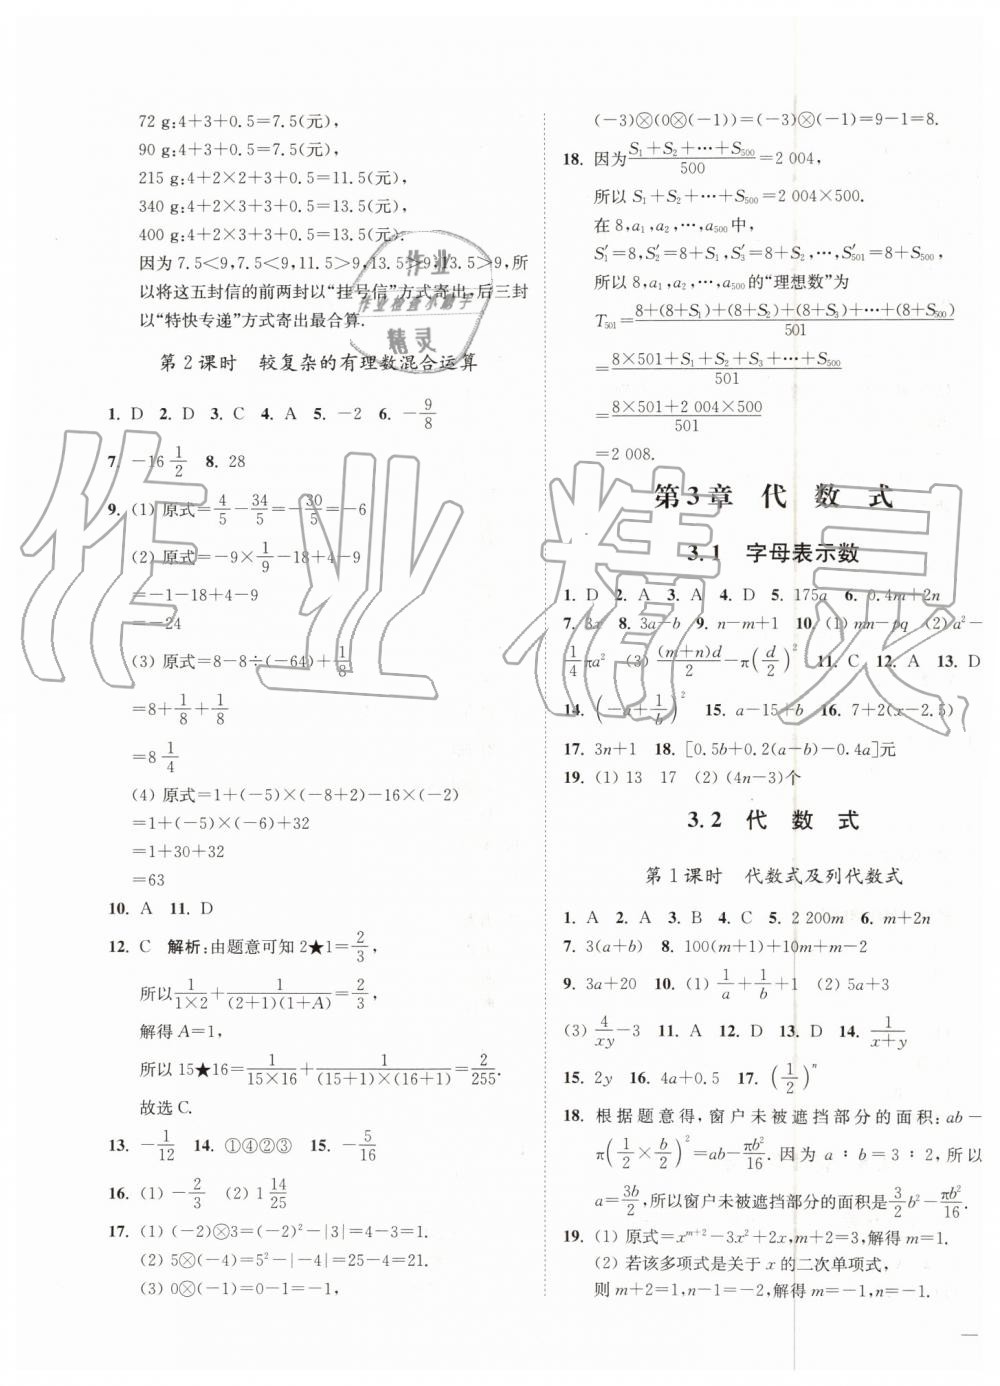 72 g:4+3+0.5=7.5(元),
90 g:4+3+0.5=7.5(元),
215 g:4+2×2+3+0.5=11.5(元),
340 g:4+2×3+3+0.5=13.5(元),
400 g:4+2×3+3+0.5=13.5(元).
因为7.5<9,7.5<9,11.5>9,13.5>9,13.5>9,所
以将这五封信的前两封以“挂号信”方式寄出,后三封
以“特快专递”方式寄出最合算.
第2课时 较复杂的有理数混合运算
1. D 2. D 3. C 4. A 5. -2 6. -9/8
7. -16 1/2 8. 28
9. (1) 原式=4/5-34/5=-30/5=-6
(2) 原式=-9×1/9-18+4-9
=-1-18+4-9
=-24
(3) 原式=8-8÷(-64)+1/8
=8+1/8+1/8
=8 1/4
(4) 原式=1+(-5)×(-8+2)-16×(-2)
=1+(-5)×(-6)+32
=1+30+32
=63
10. A 11. D
12. C 解析:由题意可知2★1=2/3,
所以1/(1×2)+1/((2+1)(1+A))=2/3,
解得A=1,
所以15★16=1/(15×16)+1/((15+1)×(16+1))=2/255.
故选C.
13. -1/12 14. ①④②③ 15. -5/16
16. (1) -2/3 (2) 1 14/25
17. (1) (-2)⊗3=(-2)²-|3|=4-3=1.
(2) 5⊗(-4)=5²-|-4|=25-4=21.
(3) 0⊗(-1)=0-1=-1,
(-3)⊗(0⊗(-1))=(-3)⊗(-1)=9-1=8.
18. 因为(S₁+S₂+⋯+S₅₀₀)/500=2 004,
所以S₁+S₂+⋯+S₅₀₀=2 004×500.
在8,a₁,a₂,⋯,a₅₀₀中,
S′₁=8,S′₂=8+S₁,S′₃=8+S₂,⋯,S′₅₀₁=8+S₅₀₀,
所以8,a₁,a₂,⋯,a₅₀₀的“理想数”为
T₅₀₁=(8+(8+S₁)+(8+S₂)+⋯+(8+S₅₀₀))/501
=(8×501+S₁+S₂+⋯+S₅₀₀)/501
=(8×501+2 004×500)/501
=2 008.
第3章 代数式
3.1 字母表示数
1. D 2. A 3. A 4. D 5. 175a 6. 0.4m+2n
7. 3x 8. 3a-b 9. n-m+1 10. (1) mn-pq (2) a²-
1/4πa² (3) (m+n)d/2-π(d/2)² 11. C 12. A 13. D
14. (-a+1/b)² 15. a-15+b 16. 7+2(x-2.5)
17. 3n+1 18. [0.5b+0.2(a-b)-0.4a]元
19. (1) 13 17 (2) (4n-3)个
3.2 代数式
第1课时 代数式及列代数式
1. A 2. A 3. B 4. C 5. 2 200m 6. m+2n
7. 3(a+b) 8. 100(m+1)+10m+m-2
9. 3a+20 10. (1) 1/a+1/b+1 (2) 5a+3
(3) 4/xy-3 11. A 12. D 13. D 14. 1/(x+y)
15. 2y 16. 4a+0.5 17. (1/2)ⁿ
18. 根据题意得,窗户未被遮挡部分的面积:ab-
π(1/2×b/2)²=ab-πb²/16. 因为a∶b=3∶2,所以
a=3b/2,所以窗户未被遮挡部分的面积是3/2b²-πb²/16.
19. (1) 原式=xᵐ⁺²-3x²+2x,m+2=3,解得m=1.
(2) 若该多项式是关于x的二次单项式,
则m+2=1,n-1=-2,解得m=-1,n=-1.
作业
作业检查小助手
精灵
作业精灵